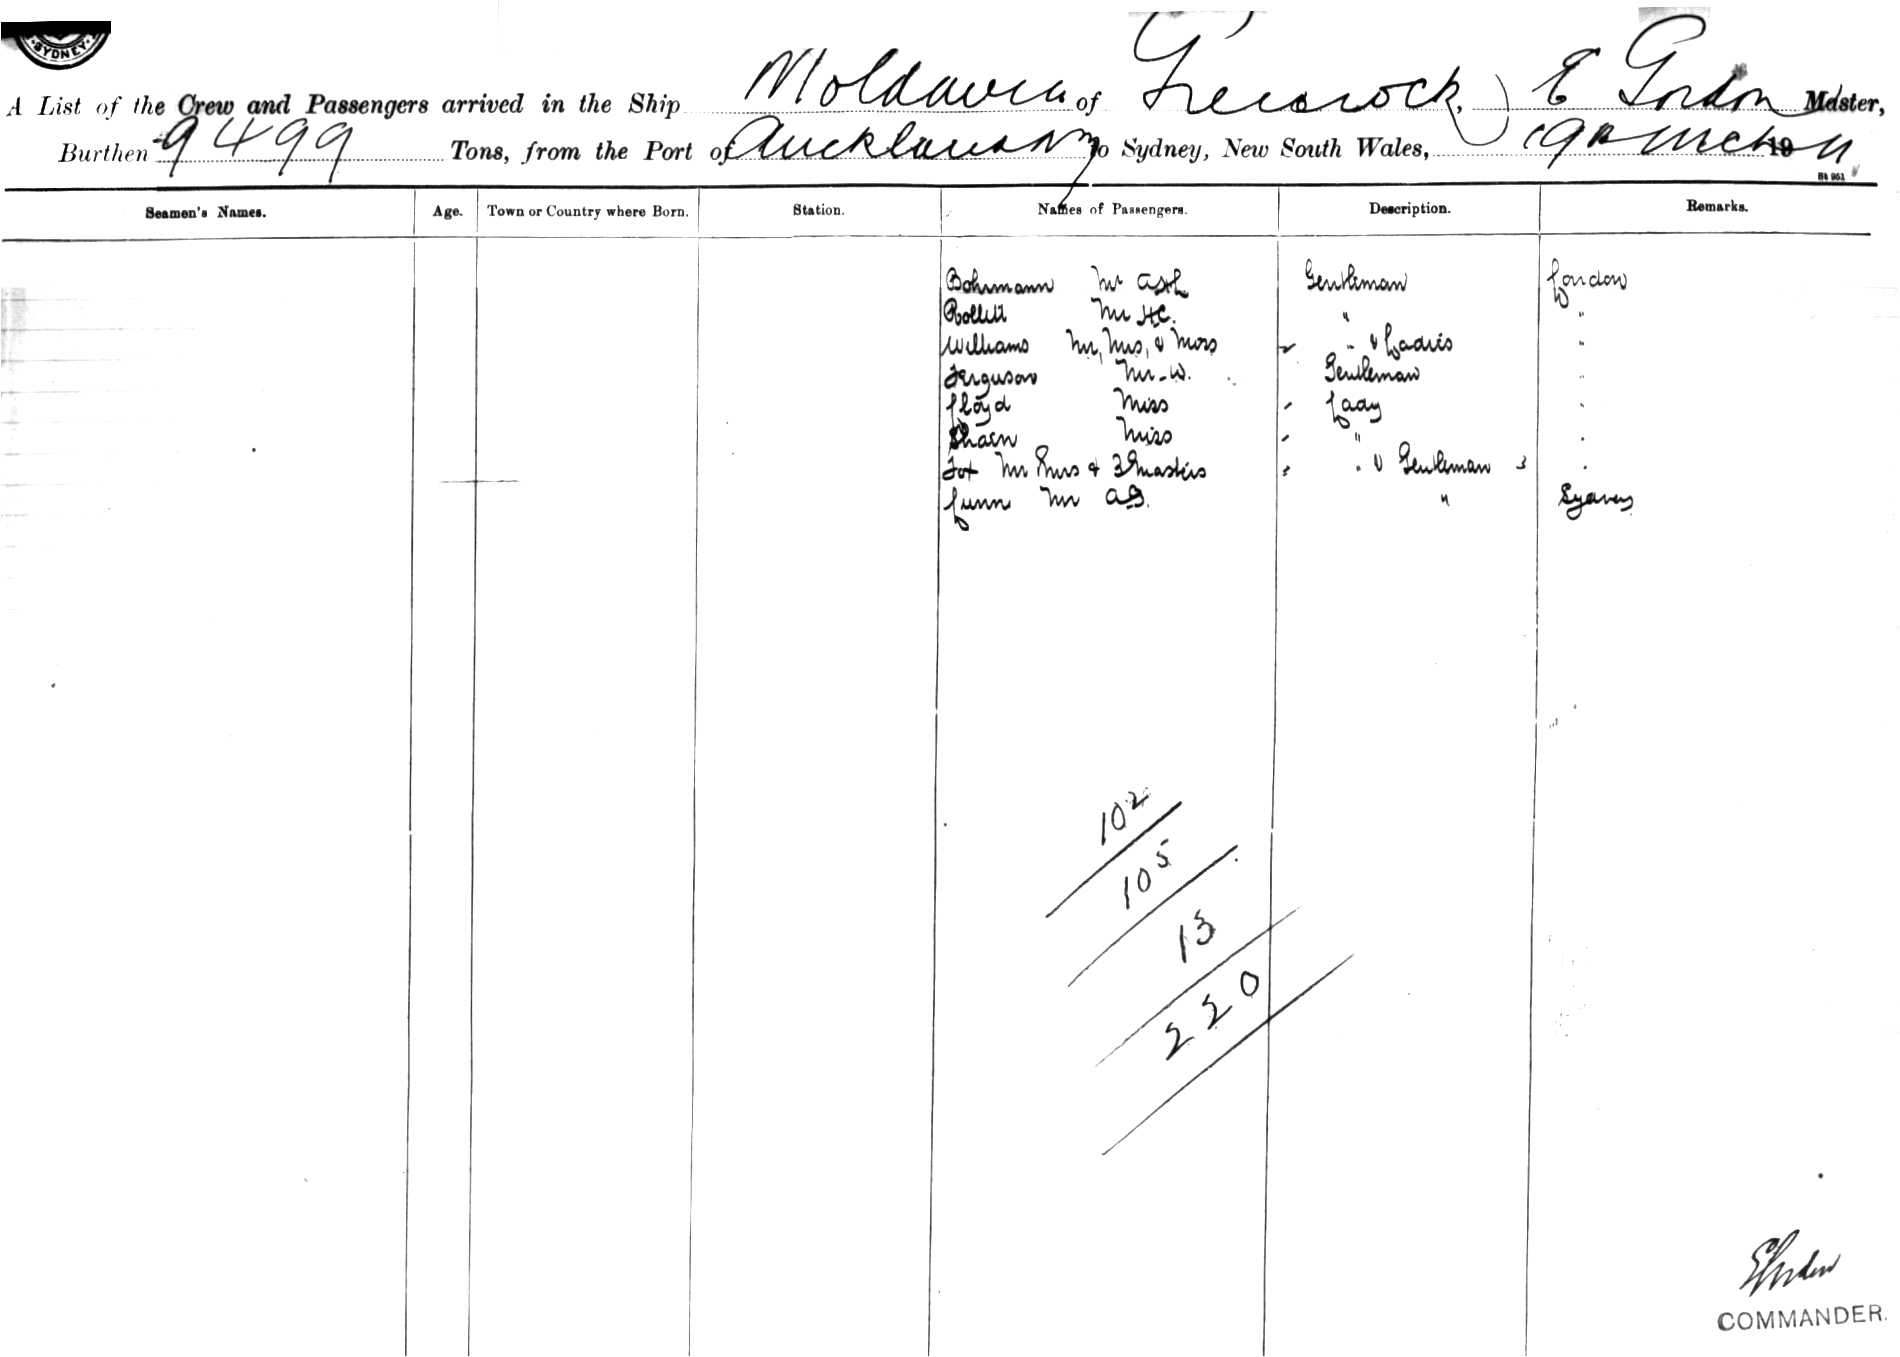 SYDNEY
A List of the Crew and Passengers arrived in the Ship Moldavia of Greenock, E Gordon Master,
Burthen 9499 Tons, from the Port of Auckland to Sydney, New South Wales, 19th March 1911
Seamen's Names. Age. Town or Country where Born. Station. Names of Passengers. Description. Remarks.
Bohrmann Mr Gentleman London
Mr H.C. " "
Williams Mr, Mrs, & Miss " & Ladies "
Ferguson Mr W. Gentleman "
Lloyd Miss Lady "
Miss " "
Fox Mr Mrs & 3 Masters " & Gentleman 3 "
Lunn Mr " Sydney
102
105
13
220
E Gordon
COMMANDER.